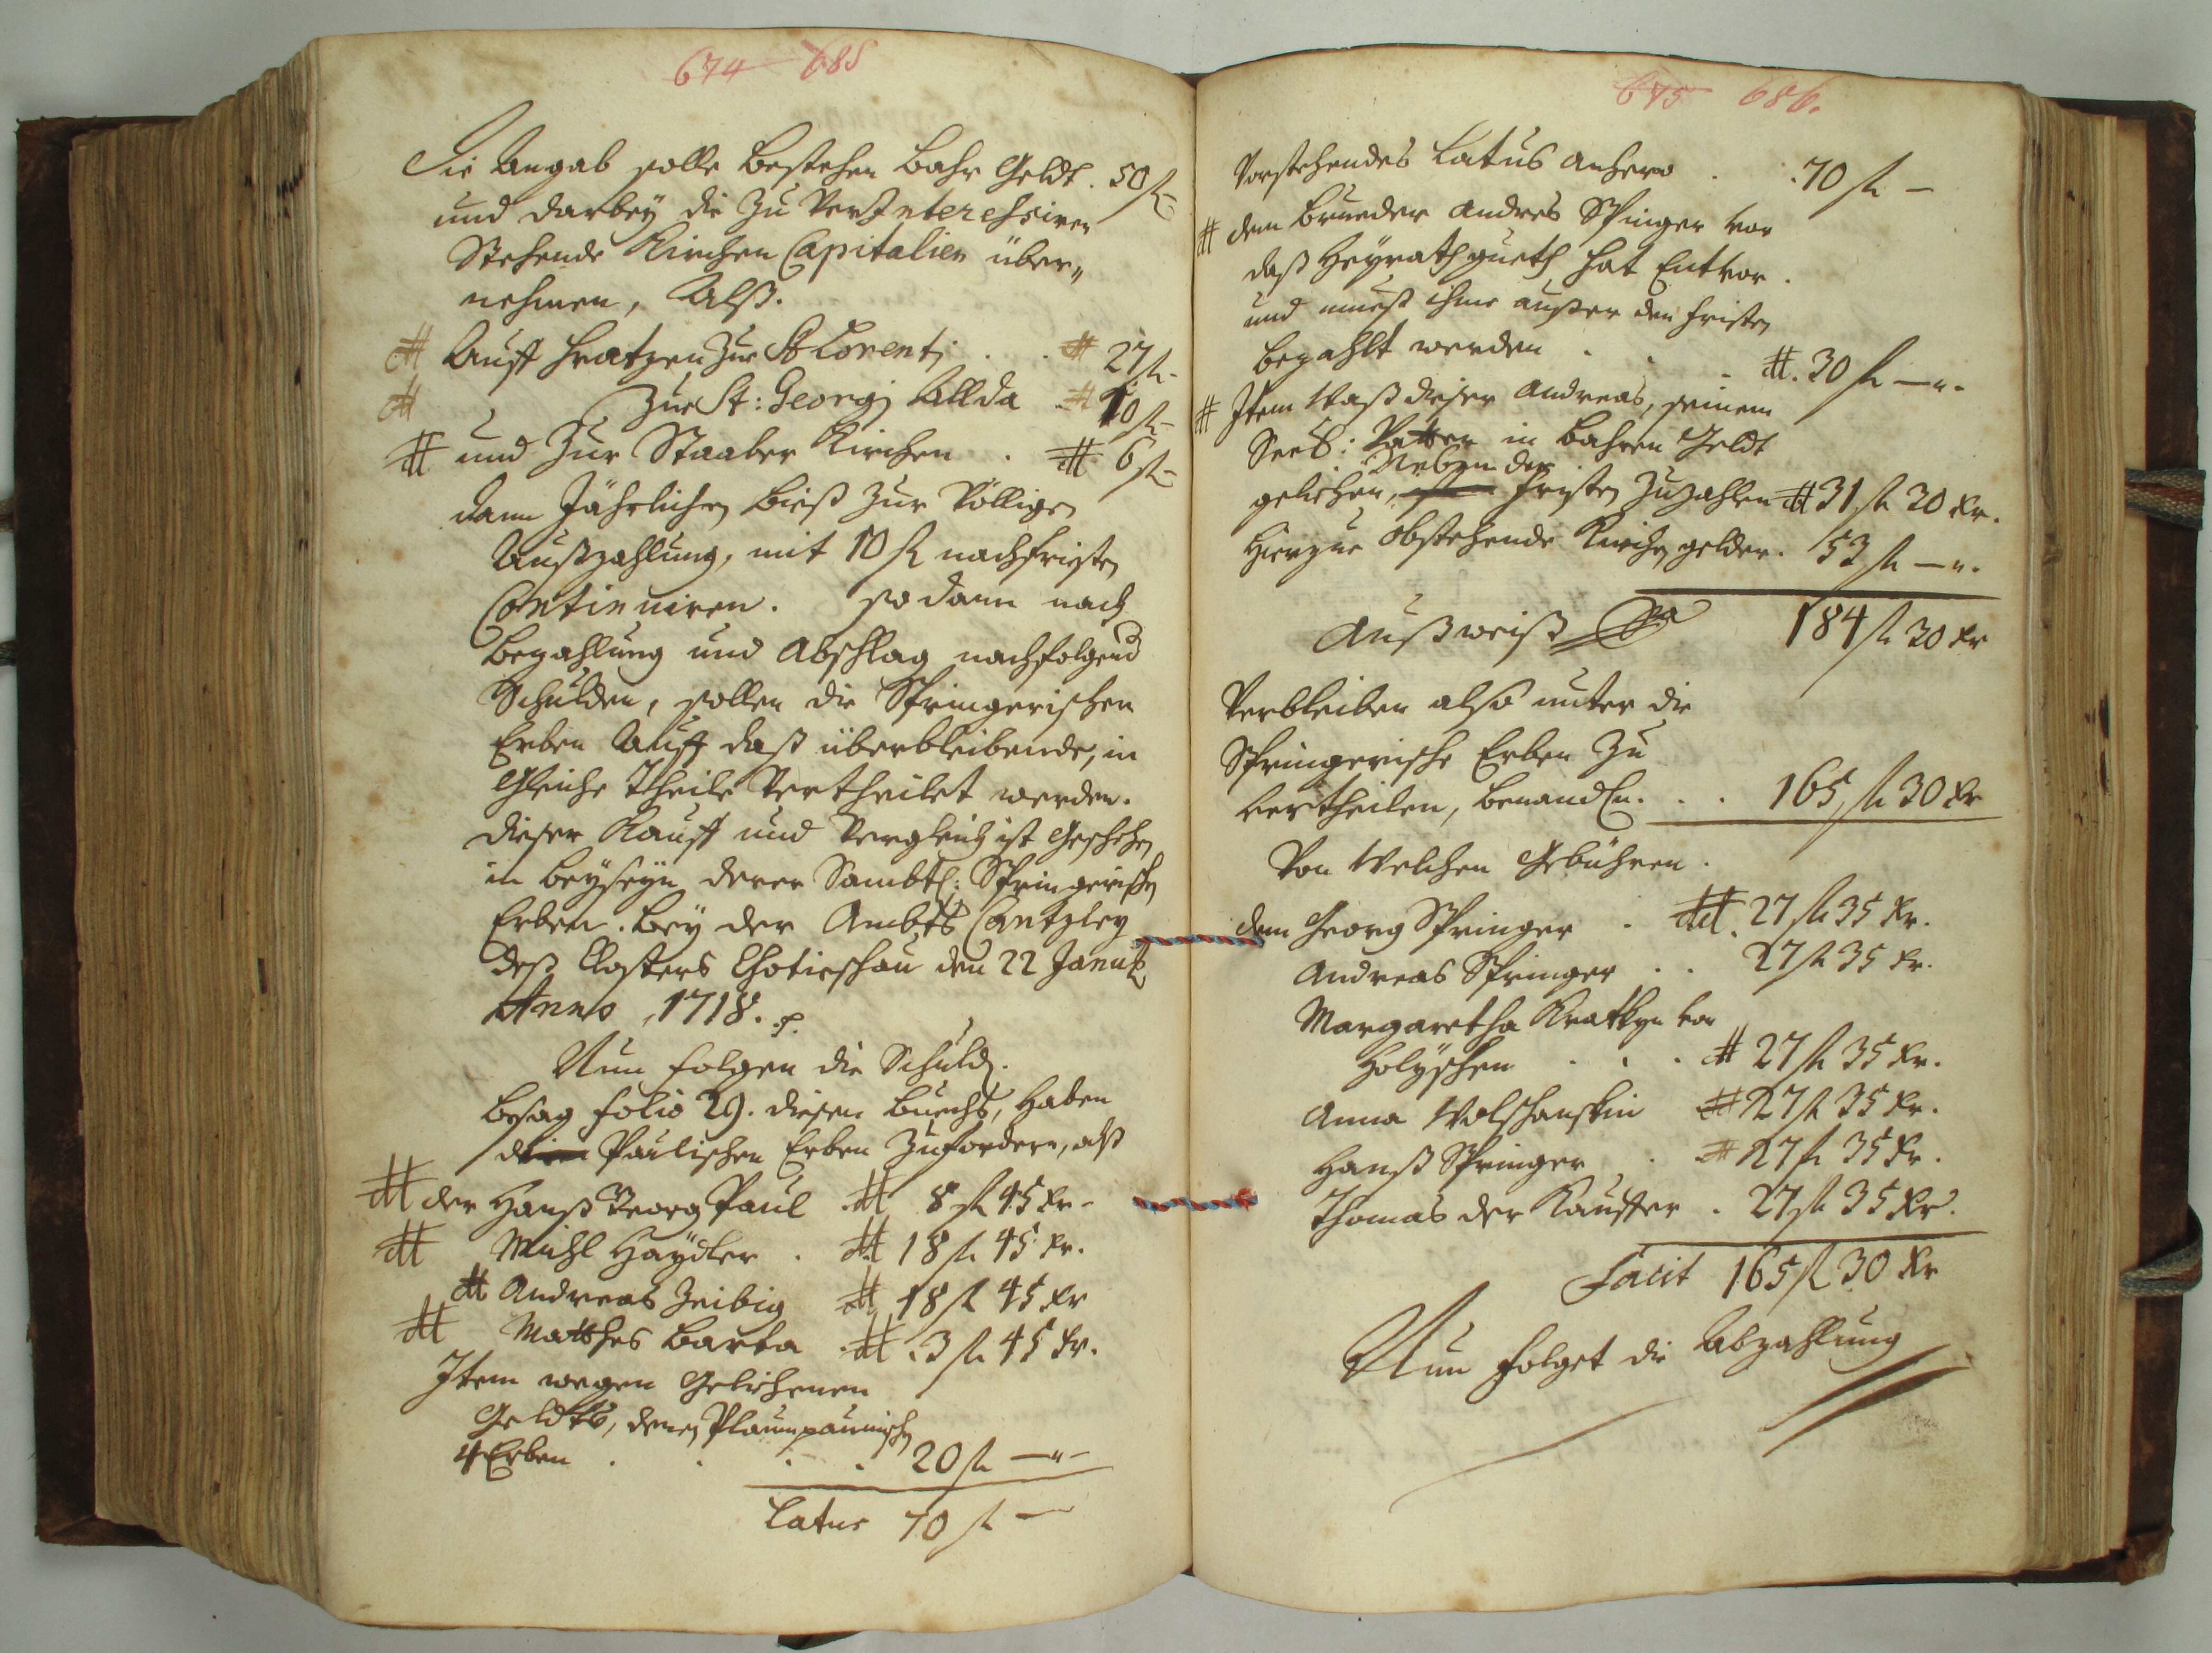 674 685
Die Angab solle bestehen bahr Geldt. 50 fl
und darbey die zu verInteressiren
Stehende Kirchen Capitalien über„
nehmen, Alß.
Auff Hratzen zur St Lorentj . . 27 fl -
zur St: Georgj Allda 10 fl -
und zur Staaber Kirchen . 6 fl -
dann Jährlichen bieß zur völligen
Außzahlung, mit 10 fl nachfristen
Continuiren. so dann nach
bezahlung und Abschlag nachfolgend
Schulden, sollen die Springerischen
Erben Auff daß überbleibende, in
Gleiche Theile Vertheilet werden.
dieser Kauff und Vergleich ist Geschehen
in beyseyn derer Sambtl: Springerischen
Erben. bey der Ambts Cantzley
deß Closters Chotieschau den 22 Janu
Anno 1718.
Nun folgen die Schuld.
besag folio 29. diesen buechs, haben
Paulischen Erben zufordern, alß
der Hanß Georg Paul 8 fl 45 kr -
Michl Haydler . 18 fl 45 kr.
Andreas Zeibig 18 fl 45 kr
Matthes Barta 3 fl 45 kr.
Item wegen Gelichenen
Geldts, denen
4 Erben . . . . 20 fl —„-
Latus 70 fl —
675 686.
Vorstehendes Latus anhero . . 70 fl —
dem bruder Andres Springer vor
daß Heyrathgueth hat Entvor .
und mueß ihme außer den fristen
bezahlt werden . . - 30 fl —„-
Item Waß dieser Andreas, seinem
Seel: Vatter in bahren Geldt
Neben der
gelichen, fristen zuzahlen 31 fl 20 kr.
Hierzue obstehende Kirchengelder. 53 fl —„.
Außweiß 184 fl 20 kr
Verbleiben also unter die
Springerische Erben zu
vertheilen, benandl. . . 165 fl 30 kr
Von Welchen Gebühren .
dem Georg Springer . 27 fl 35 kr.
Andreas Springer . . 27 fl 35 kr.
Margaretha Kratkyn von
Holyschen . . . 27 fl 35 kr.
Anna Wolschanskin 27 fl 35 kr.
Hanß Springer . 27 fl 35 kr.
Thomas der Kauffer . 27 fl 35 kr.
Facit 165 fl 30 kr
Nun folget die Abzahlung